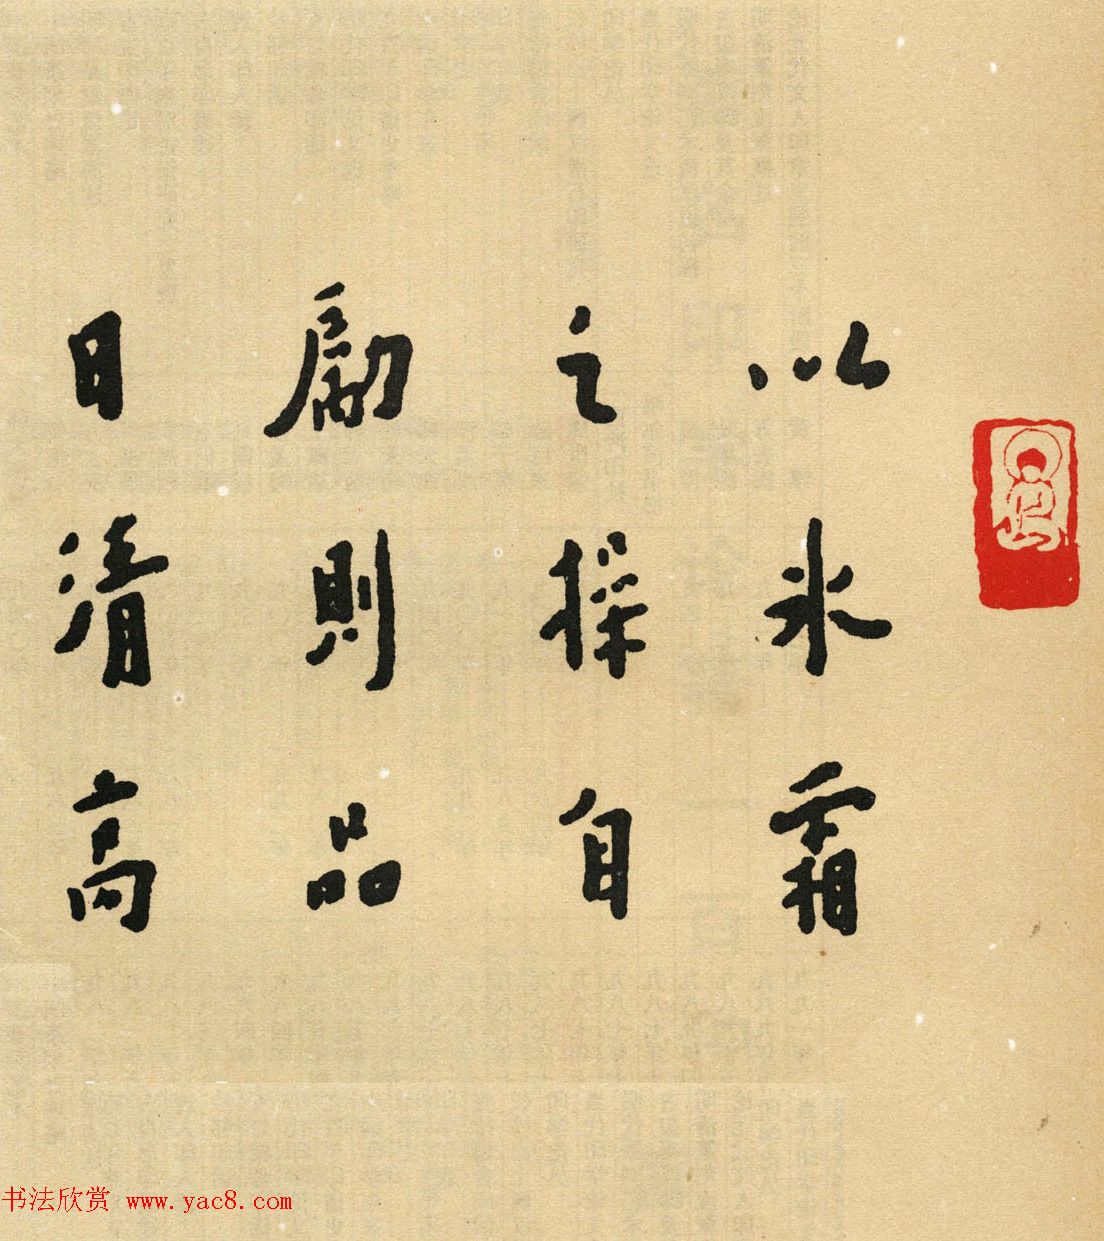 以冰霜
之操自
勵則品
日清高
书法欣赏 www.yac8.com